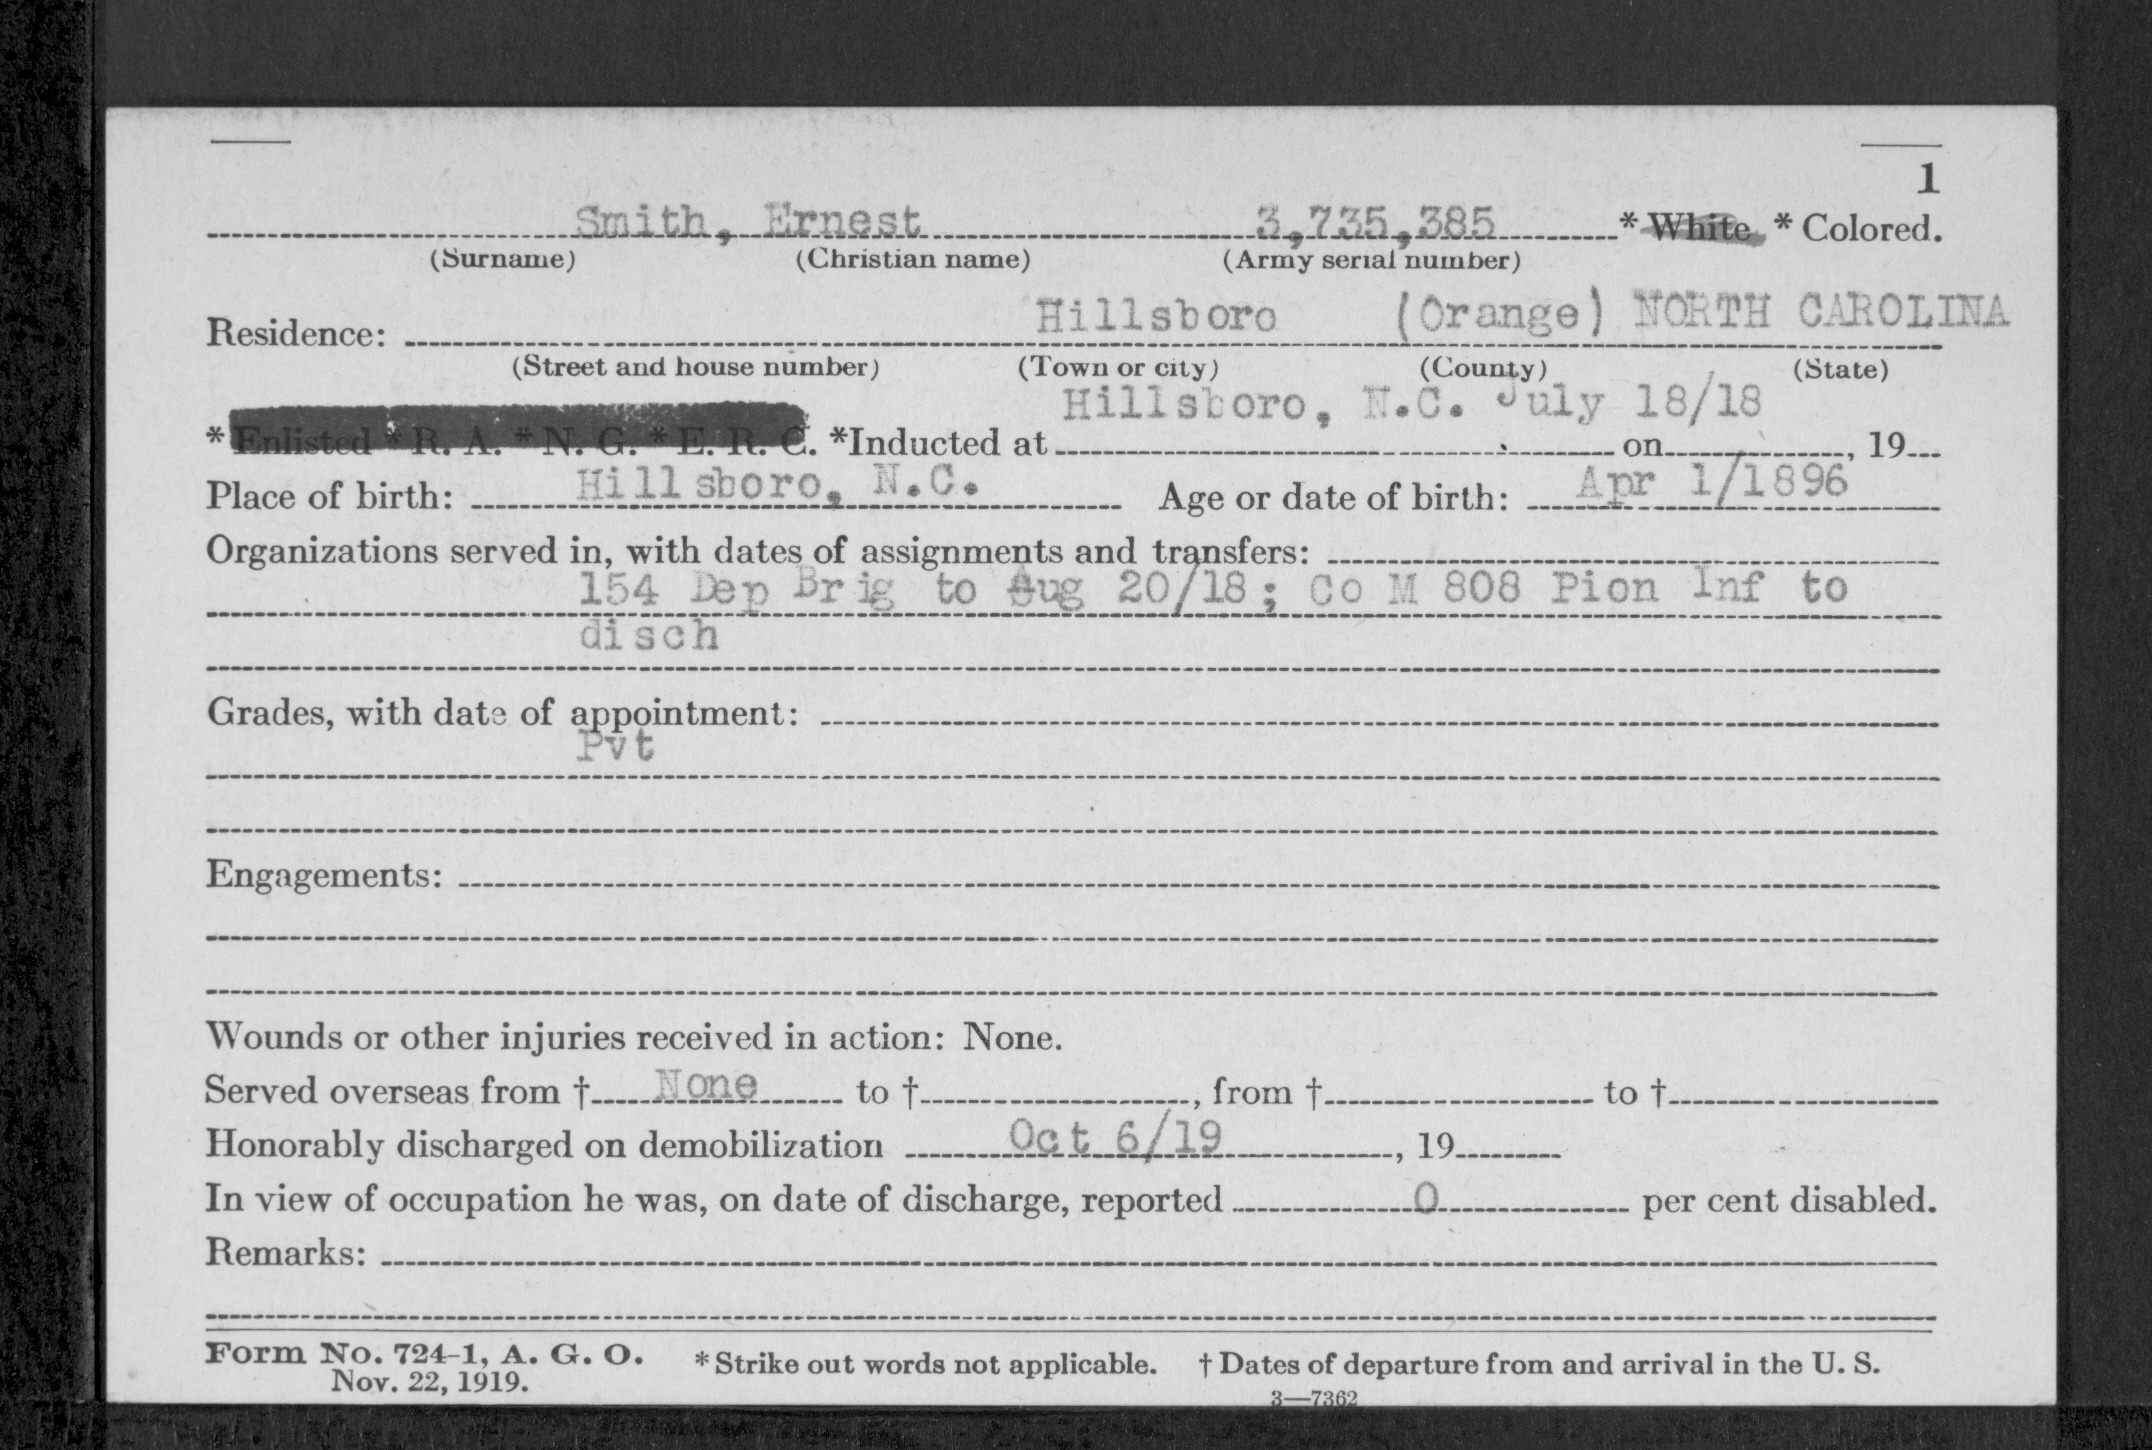 1
Smith, Ernest 3,735,385 * White * Colored.
(Surname) (Christian name) (Army serial number)
Hillsboro (Orange) NORTH CAROLINA
Residence:
(Street and house number) (Town or city) (County) (State)
Hillsboro, N.C. July 18/18
* Enlisted * R. A. * N. G. * E. R. C. *Inducted at on , 19
Place of birth: Hillsboro, N.C. Age or date of birth: Apr 1/1896
Organizations served in, with dates of assignments and transfers:
154 Dep Brig to Aug 20/18; Co M 808 Pion Inf to
disch
Grades, with date of appointment:
Pvt
Engagements:
Wounds or other injuries received in action: None.
Served overseas from † None to † , from † to †
Honorably discharged on demobilization Oct 6/19 , 19
In view of occupation he was, on date of discharge, reported 0 per cent disabled.
Remarks:
Form No. 724-1, A. G. O. * Strike out words not applicable. † Dates of departure from and arrival in the U. S.
Nov. 22, 1919.
3—7362